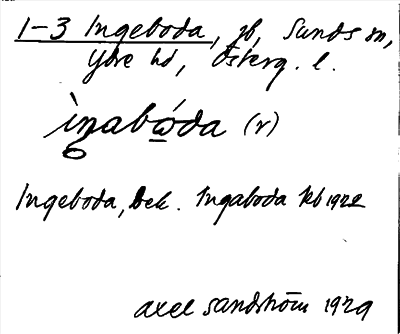 1-3 Ingeboda, gb, Sunds sn,
Ydre hd, Österg. l.
ìŋabώda (r)
Ingeboda, Bek. Ingaboda kb 1922
Axel Sandström 1929